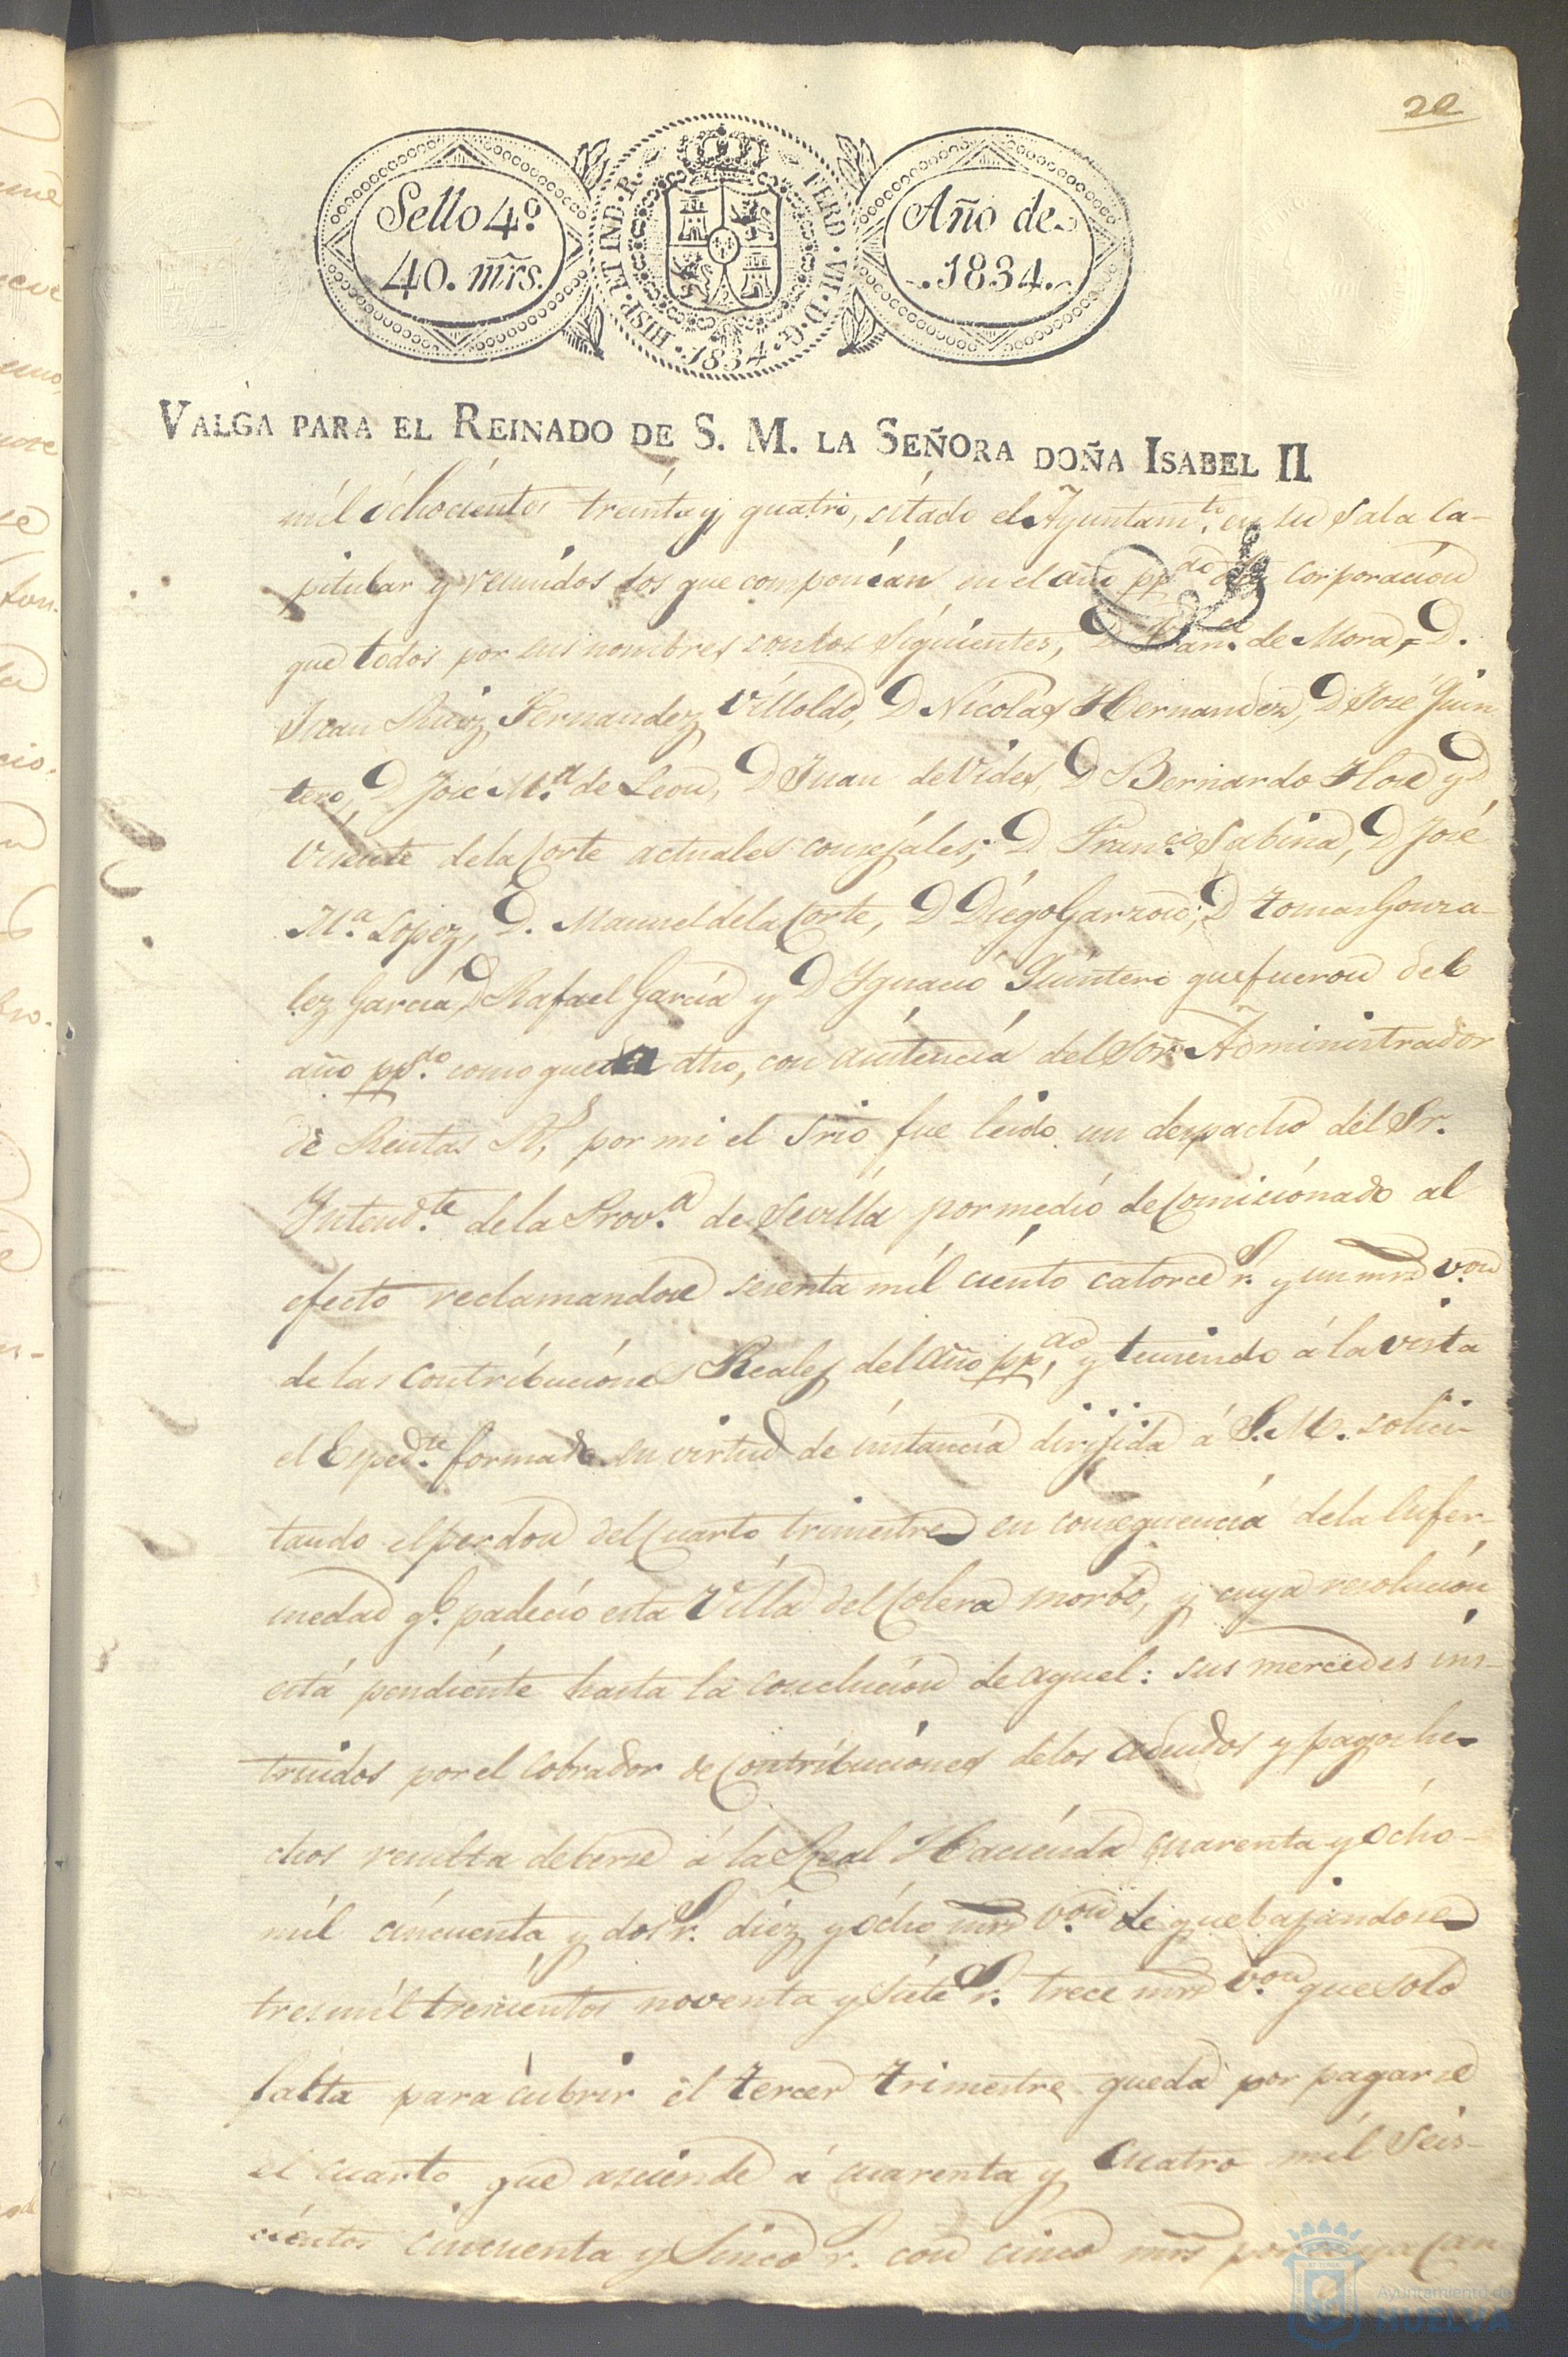 20
Sello 4º
40. mrs.
HISP. ET IND. R. FERD. VII. D. G. 1834
Año de
1834.
VALGA PARA EL REINADO DE S. M. LA SEÑORA DOÑA ISABEL II
mil ochocientos treinta y quatro, sitado el Ayuntamto. en su sala ca-
pitular y reunidos los que componian en el año ppdo corporacion
que todos por sus nombres son los Siguientes, D de Mora, D.
Juan Ruiz Fernandez Villoldo, D Nicolas Hernandez, D José Quin
tero, D José Ma de Leon, D Juan de Vides, D Bernardo Flor y D
Vicente de la Corte actuales consejales; D Franco. Sabina, D José
Ma. Lopez, D. Manuel de la Corte, D Diego Garzon, D Tomas Gonza-
lez Garcia, D Rafael Garcia y D Ygnacio Quintero que fueron del
año ppdo. como queda dho, con asistencia del Sor. Administrador
de Rentas Rs, por mi el Srio fue leido un despacho del Sr.
Intendte. de la Prova. de Sevilla por medio de Comicionado al
efecto reclamandose sesenta mil ciento catorce rs. y un mrs von
de las contribuciones Reales del año ppdo, y teniendo á la vista
el Espedte. formado en virtud de instancia dirijida á S. M. solici-
tando el perdon del Cuarto trimestre en consequencia de la Enfer-
medad qe. padecio esta Villa del Colera morbo, y cuya resolucion
está pendiente hasta la conclucion de aquel: sus mercedes ins-
truidos por el Cobrador de Contribuciones de los adeudos y pagos he-
chos resulta deberse á la Real Hacienda cuarenta y ocho
mil cincuenta y dos rs. diez y ocho mrs von de que bajandose
tres mil trescientos noventa y siete rs. trece mrs von que solo
falta para cubrir el tercer trimestre queda por pagarse
el cuarto que asciende á cuarenta y cuatro mil Seis-
cientos cincuenta y Sinco rs. con cinco mrs por cuya can
Ayuntamiento de
HUELVA